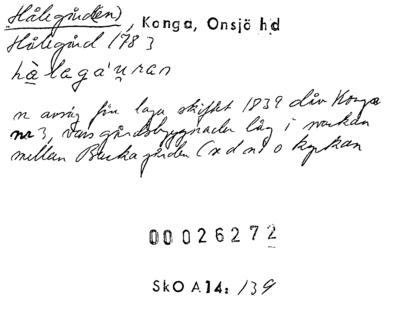 Hålegård(en), Konga, Onsjö hd
Hålegård 1783
hålagáuran
n avsåg före laga skiftet 1839 dåv Konga
nr 3, vars gårdsbyggnader låg i marken
mellan Backagården (x d n) o kyrkan
00026272
SkO A14: 139